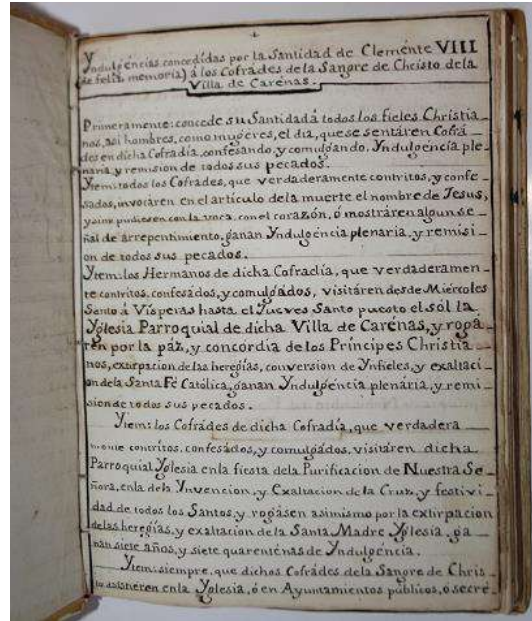 Yndulgéncias concedídas por la Santidad de Cleménte VIII
(de felíz memoria) á los Cofrádes dela Sangre de Christo dela
Villa de Carénas.
Primeramente: concede su Santidad á todos los fieles Christia_
nos, asi hombres, como mugeres, el dia, que se sentáren Cofrá_
des en dicha Cofradía, confesando, y comulgando, Yndulgencia ple_
naria, y remision de todos sus pecados.
Ytem: todos los Cofrádes, que verdaderamente contritos, y confe_
sados, invocáren en el artículo dela muerte el nombre de Jesus,
y sino pudiesen con la voca, con el corazón, ó mostráren algun se_
ñal de arrepentimiento, ganan Yndulgéncia plenaria, y remisi_
on de todos sus pecados.
Ytem: los Hermanos de dicha Cofradía, que verdaderamen_
te contritos, confesádos, y comulgádos, visitáren desde Miércoles
Santo á Vísperas hasta el Jueves Santo puesto el sól la
Yglesia Parroquial de dicha Villa de Carénas, y rogá_
ren por la páz, y concordia de los Príncipes Christia_
nos, extirpacion de las heregías, conversion de Ynfieles, y exaltaci_
on dela Santa Fé Católica, ganan Yndulgéncia plenária, y remi_
sion de todos sus pecados.
Ytem: los Cofrádes de dicha Cofradía, que verdadera
mente contritos, confesádos, y comulgádos, visitáren dicha
Parroquial Yglesia enla fiesta dela Purificacion de Nuestra Se_
ñora, enla dela Ynvencion, y Exaltacion dela Cruz, y festivi_
dad de todos los Santos, y rogásen asimismo por la extirpacion
delas heregías, y exaltacion dela Santa Madre Yglesia, ga_
nan siete años, y siete quarenténas de Yndulgéncia.
Ytem: siempre, que dichos Cofrádes dela Sangre de Chris_
to asistieren enla Yglesia, ó en Ayuntamientos públicos, ó secré_